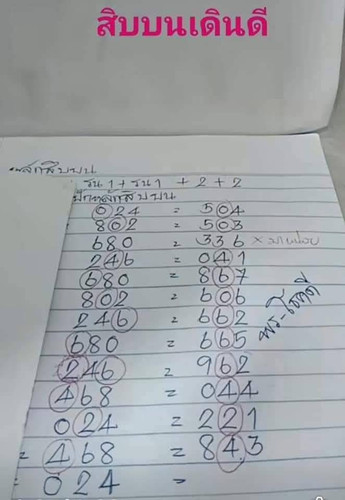 สิบบนเดินดี
หลักสิบบน
วัน 1 + วัน 1 + 2 + 2
หลักสิบบน
024 = 504
802 = 503
680 = 336 ×
246 = 041
680 = 867
802 = 606
246 = 662
680 = 665
246 = 962
468 = 044
024 = 221
= 468 = 843
= 024 =